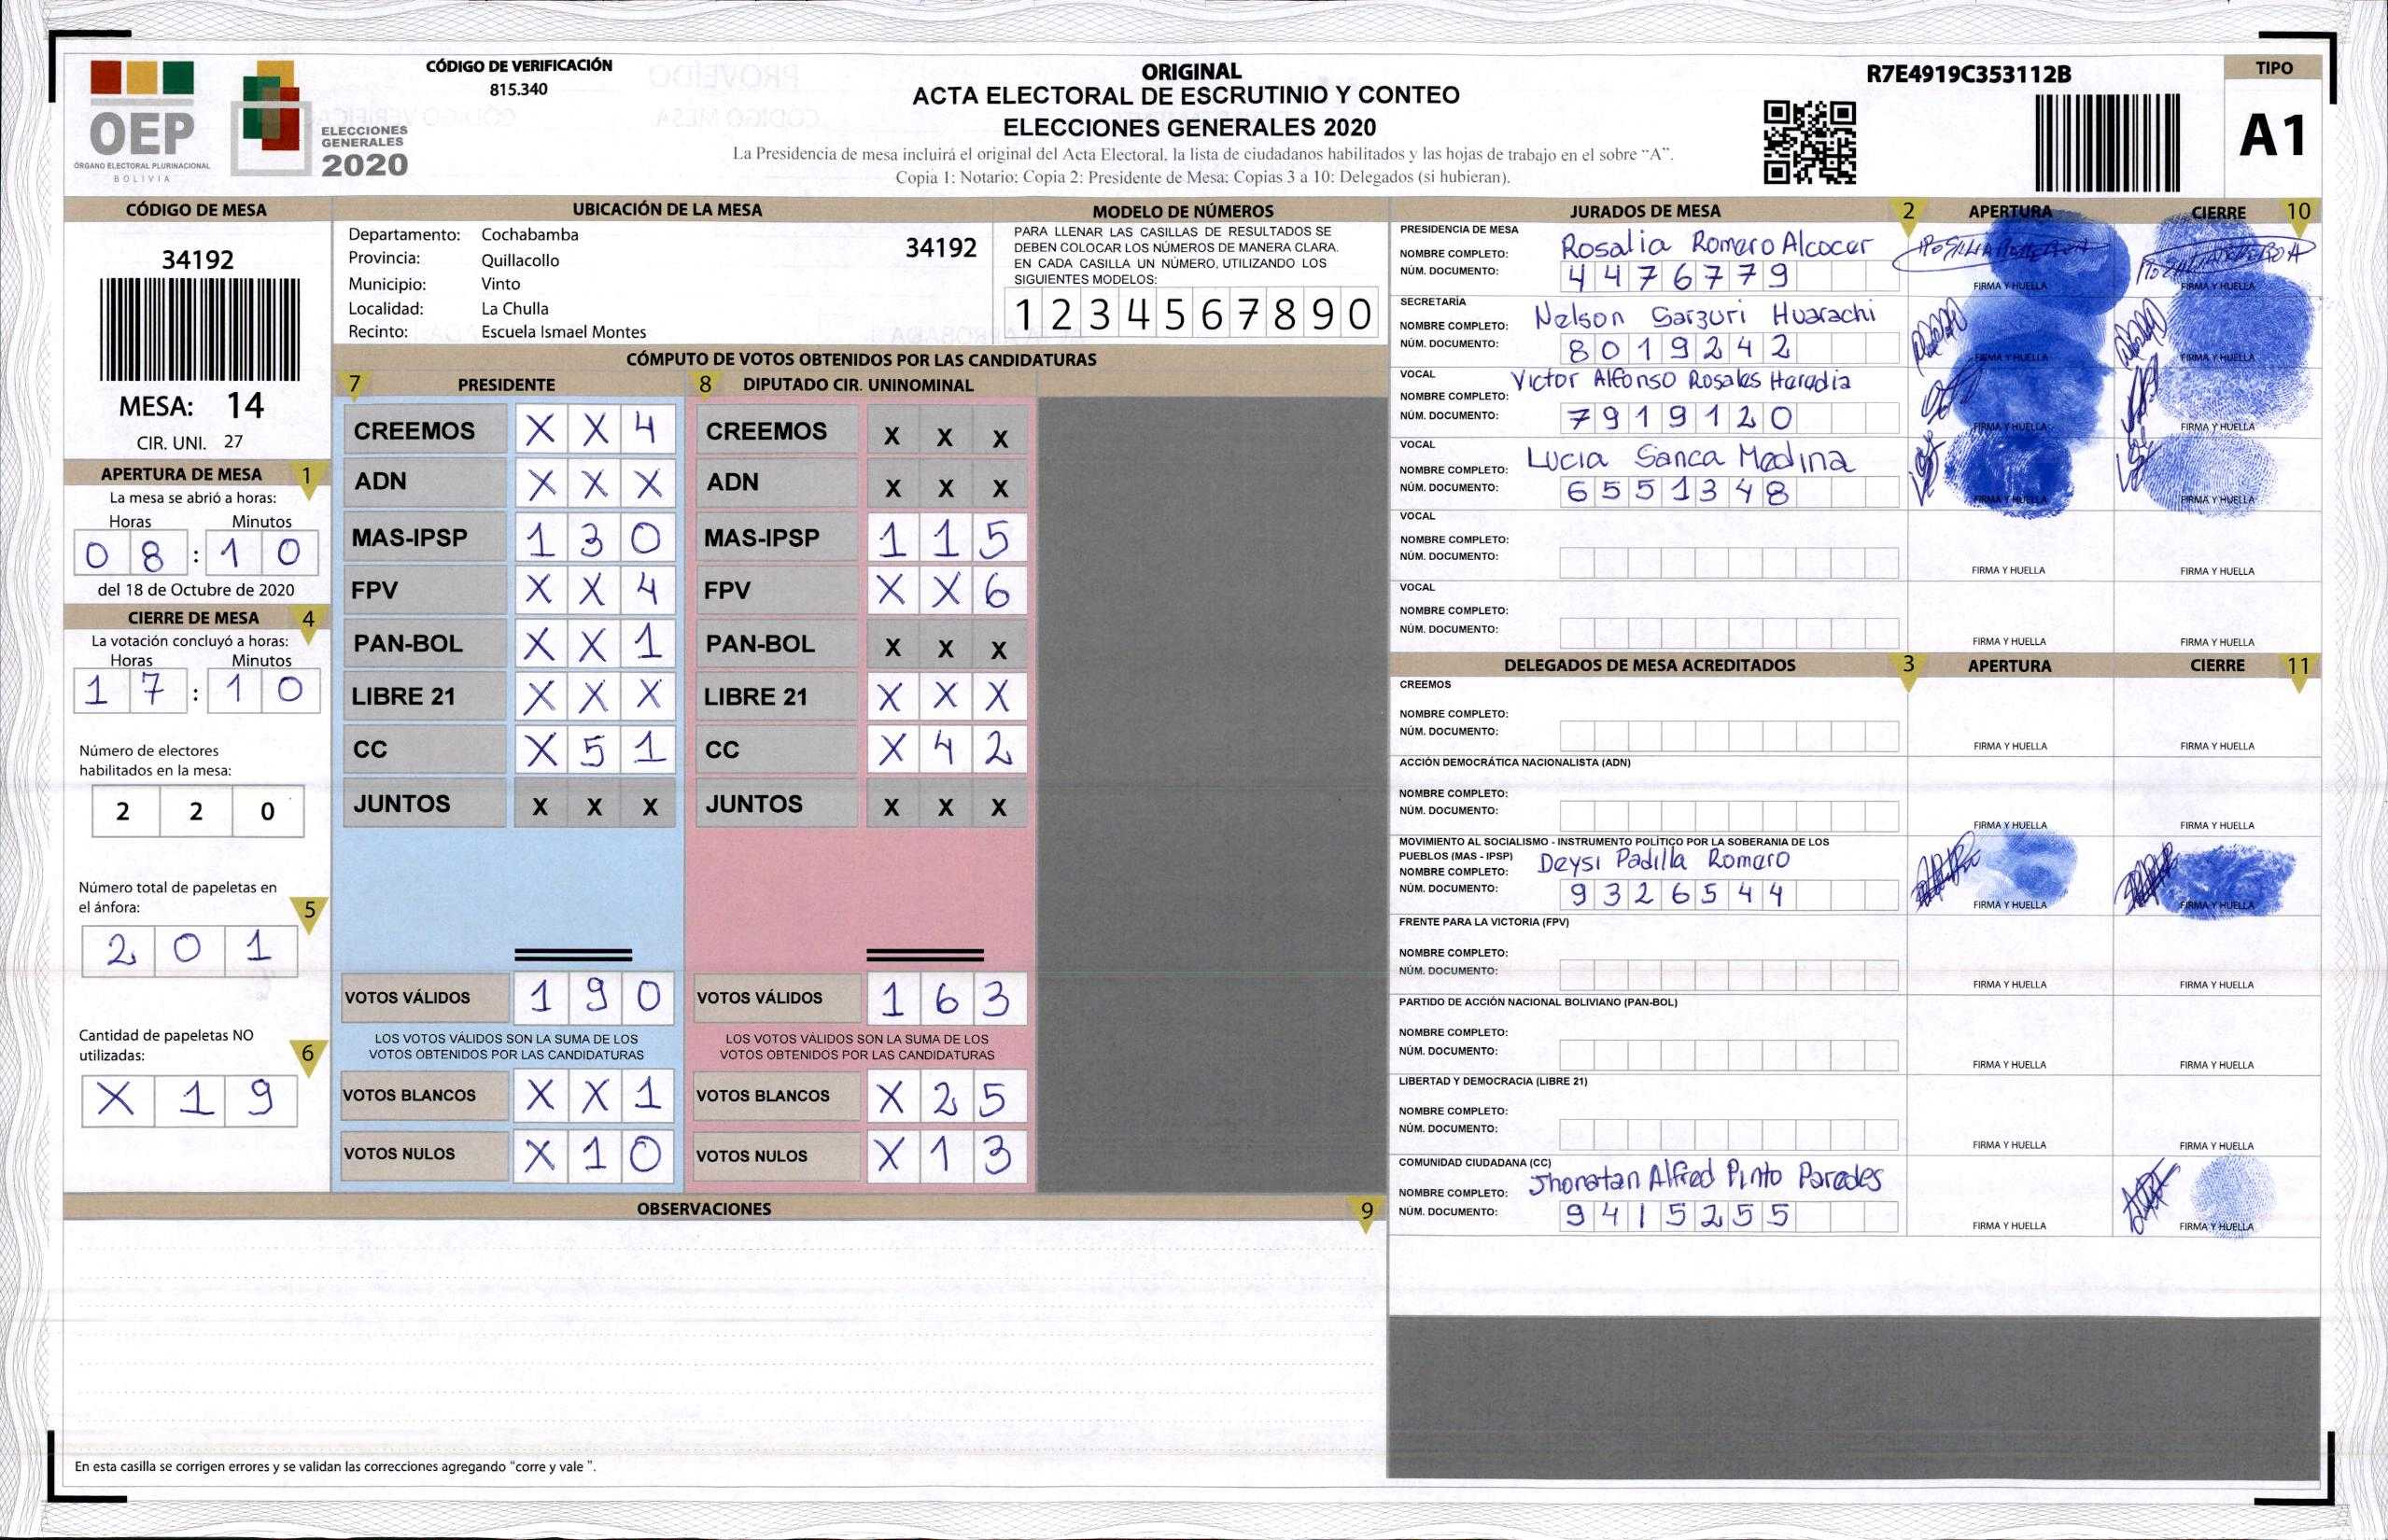 CÓDIGO DE VERIFICACIÓN
815.340
OEP
ÓRGANO ELECTORAL PLURINACIONAL
BOLIVIA
ELECCIONES
GENERALES
2020
ORIGINAL
ACTA ELECTORAL DE ESCRUTINIO Y CONTEO
ELECCIONES GENERALES 2020
La Presidencia de mesa incluirá el original del Acta Electoral, la lista de ciudadanos habilitados y las hojas de trabajo en el sobre "A".
Copia 1: Notario; Copia 2: Presidente de Mesa; Copias 3 a 10: Delegados (si hubieran).
R7E4919C353112B
TIPO
A1
CÓDIGO DE MESA
34192
MESA: 14
CIR. UNI. 27
APERTURA DE MESA 1
La mesa se abrió a horas:
Horas Minutos
0 8 : 1 0
del 18 de Octubre de 2020
CIERRE DE MESA 4
La votación concluyó a horas:
Horas Minutos
1 7 : 1 0
Número de electores
habilitados en la mesa:
2 2 0
Número total de papeletas en
el ánfora: 5
2 0 1
Cantidad de papeletas NO
utilizadas: 6
X 1 9
UBICACIÓN DE LA MESA
Departamento: Cochabamba 34192
Provincia: Quillacollo
Municipio: Vinto
Localidad: La Chulla
Recinto: Escuela Ismael Montes
MODELO DE NÚMEROS
PARA LLENAR LAS CASILLAS DE RESULTADOS SE
DEBEN COLOCAR LOS NÚMEROS DE MANERA CLARA.
EN CADA CASILLA UN NÚMERO, UTILIZANDO LOS
SIGUIENTES MODELOS:
1 2 3 4 5 6 7 8 9 0
CÓMPUTO DE VOTOS OBTENIDOS POR LAS CANDIDATURAS
7 PRESIDENTE 8 DIPUTADO CIR. UNINOMINAL
CREEMOS X X 4 CREEMOS X X X
ADN X X X ADN X X X
MAS-IPSP 1 3 0 MAS-IPSP 1 1 5
FPV X X 4 FPV X X 6
PAN-BOL X X 1 PAN-BOL X X X
LIBRE 21 X X X LIBRE 21 X X X
CC X 5 1 CC X 4 2
JUNTOS X X X JUNTOS X X X
VOTOS VÁLIDOS 1 9 0 VOTOS VÁLIDOS 1 6 3
LOS VOTOS VÁLIDOS SON LA SUMA DE LOS LOS VOTOS VÁLIDOS SON LA SUMA DE LOS
VOTOS OBTENIDOS POR LAS CANDIDATURAS VOTOS OBTENIDOS POR LAS CANDIDATURAS
VOTOS BLANCOS X X 1 VOTOS BLANCOS X 2 5
VOTOS NULOS X 1 0 VOTOS NULOS X 1 3
OBSERVACIONES 9
En esta casilla se corrigen errores y se validan las correcciones agregando "corre y vale ".
JURADOS DE MESA 2 APERTURA CIERRE 10
PRESIDENCIA DE MESA
NOMBRE COMPLETO: Rosalia Romero Alcocer
NÚM. DOCUMENTO: 4 4 7 6 7 7 9
FIRMA Y HUELLA FIRMA Y HUELLA
SECRETARÍA
NOMBRE COMPLETO: Nelson Sarzuri Huarachi
NÚM. DOCUMENTO: 8 0 1 9 2 4 2
FIRMA Y HUELLA FIRMA Y HUELLA
VOCAL
NOMBRE COMPLETO: Victor Alfonso Rosales Heredia
NÚM. DOCUMENTO: 7 9 1 9 1 2 0
FIRMA Y HUELLA FIRMA Y HUELLA
VOCAL
NOMBRE COMPLETO: Lucia Sanca Medina
NÚM. DOCUMENTO: 6 5 5 1 3 4 8
FIRMA Y HUELLA FIRMA Y HUELLA
VOCAL
NOMBRE COMPLETO:
NÚM. DOCUMENTO:
FIRMA Y HUELLA FIRMA Y HUELLA
VOCAL
NOMBRE COMPLETO:
NÚM. DOCUMENTO:
FIRMA Y HUELLA FIRMA Y HUELLA
DELEGADOS DE MESA ACREDITADOS 3 APERTURA CIERRE 11
CREEMOS
NOMBRE COMPLETO:
NÚM. DOCUMENTO:
FIRMA Y HUELLA FIRMA Y HUELLA
ACCIÓN DEMOCRÁTICA NACIONALISTA (ADN)
NOMBRE COMPLETO:
NÚM. DOCUMENTO:
FIRMA Y HUELLA FIRMA Y HUELLA
MOVIMIENTO AL SOCIALISMO - INSTRUMENTO POLÍTICO POR LA SOBERANIA DE LOS
PUEBLOS (MAS - IPSP)
NOMBRE COMPLETO: Deysi Padilla Romero
NÚM. DOCUMENTO: 9 3 2 6 5 4 4
FIRMA Y HUELLA FIRMA Y HUELLA
FRENTE PARA LA VICTORIA (FPV)
NOMBRE COMPLETO:
NÚM. DOCUMENTO:
FIRMA Y HUELLA FIRMA Y HUELLA
PARTIDO DE ACCIÓN NACIONAL BOLIVIANO (PAN-BOL)
NOMBRE COMPLETO:
NÚM. DOCUMENTO:
FIRMA Y HUELLA FIRMA Y HUELLA
LIBERTAD Y DEMOCRACIA (LIBRE 21)
NOMBRE COMPLETO:
NÚM. DOCUMENTO:
FIRMA Y HUELLA FIRMA Y HUELLA
COMUNIDAD CIUDADANA (CC)
NOMBRE COMPLETO: Jhonatan Alfred Pinto Paredes
NÚM. DOCUMENTO: 9 4 1 5 2 5 5
FIRMA Y HUELLA FIRMA Y HUELLA